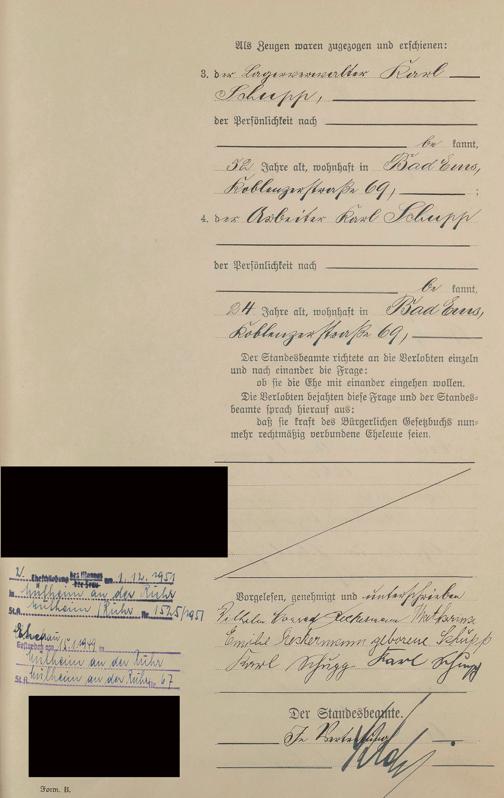 Als Zeugen waren zugezogen und erschienen:
3. der Lagerverwalter Karl
Schupp,
der Persönlichkeit nach
be kannt,
52 Jahre alt, wohnhaft in Bad Ems,
Koblenzerstraße 69, ;
4. der Arbeiter Karl Schupp
der Persönlichkeit nach
be kannt,
24 Jahre alt, wohnhaft in Bad Ems,
Koblenzerstraße 69,
Der Standesbeamte richtete an die Verlobten einzeln
und nach einander die Frage:
ob sie die Ehe mit einander eingehen wollen.
Die Verlobten bejahten diese Frage und der Standes-
beamte sprach hierauf aus:
daß sie kraft des Bürgerlichen Gesetzbuchs nun-
mehr rechtmäßig verbundene Eheleute seien.
2. Eheschließung des Mannes am 1.12.1951
der Frau
Mülheim an der Ruhr
St.A. Mülheim/Ruhr Nr. 1525/1951
Ehefrau
Gestorben am 12.1.1949 in
Mülheim an der Ruhr
St.A. Mülheim an der Ruhr Nr. 67
Vorgelesen, genehmigt und unterschrieben
Wilhelm Conrad
Emilie geborene Schupp
Karl Schupp Karl Schupp
Der Standesbeamte.
In Vertretung
Form. B.